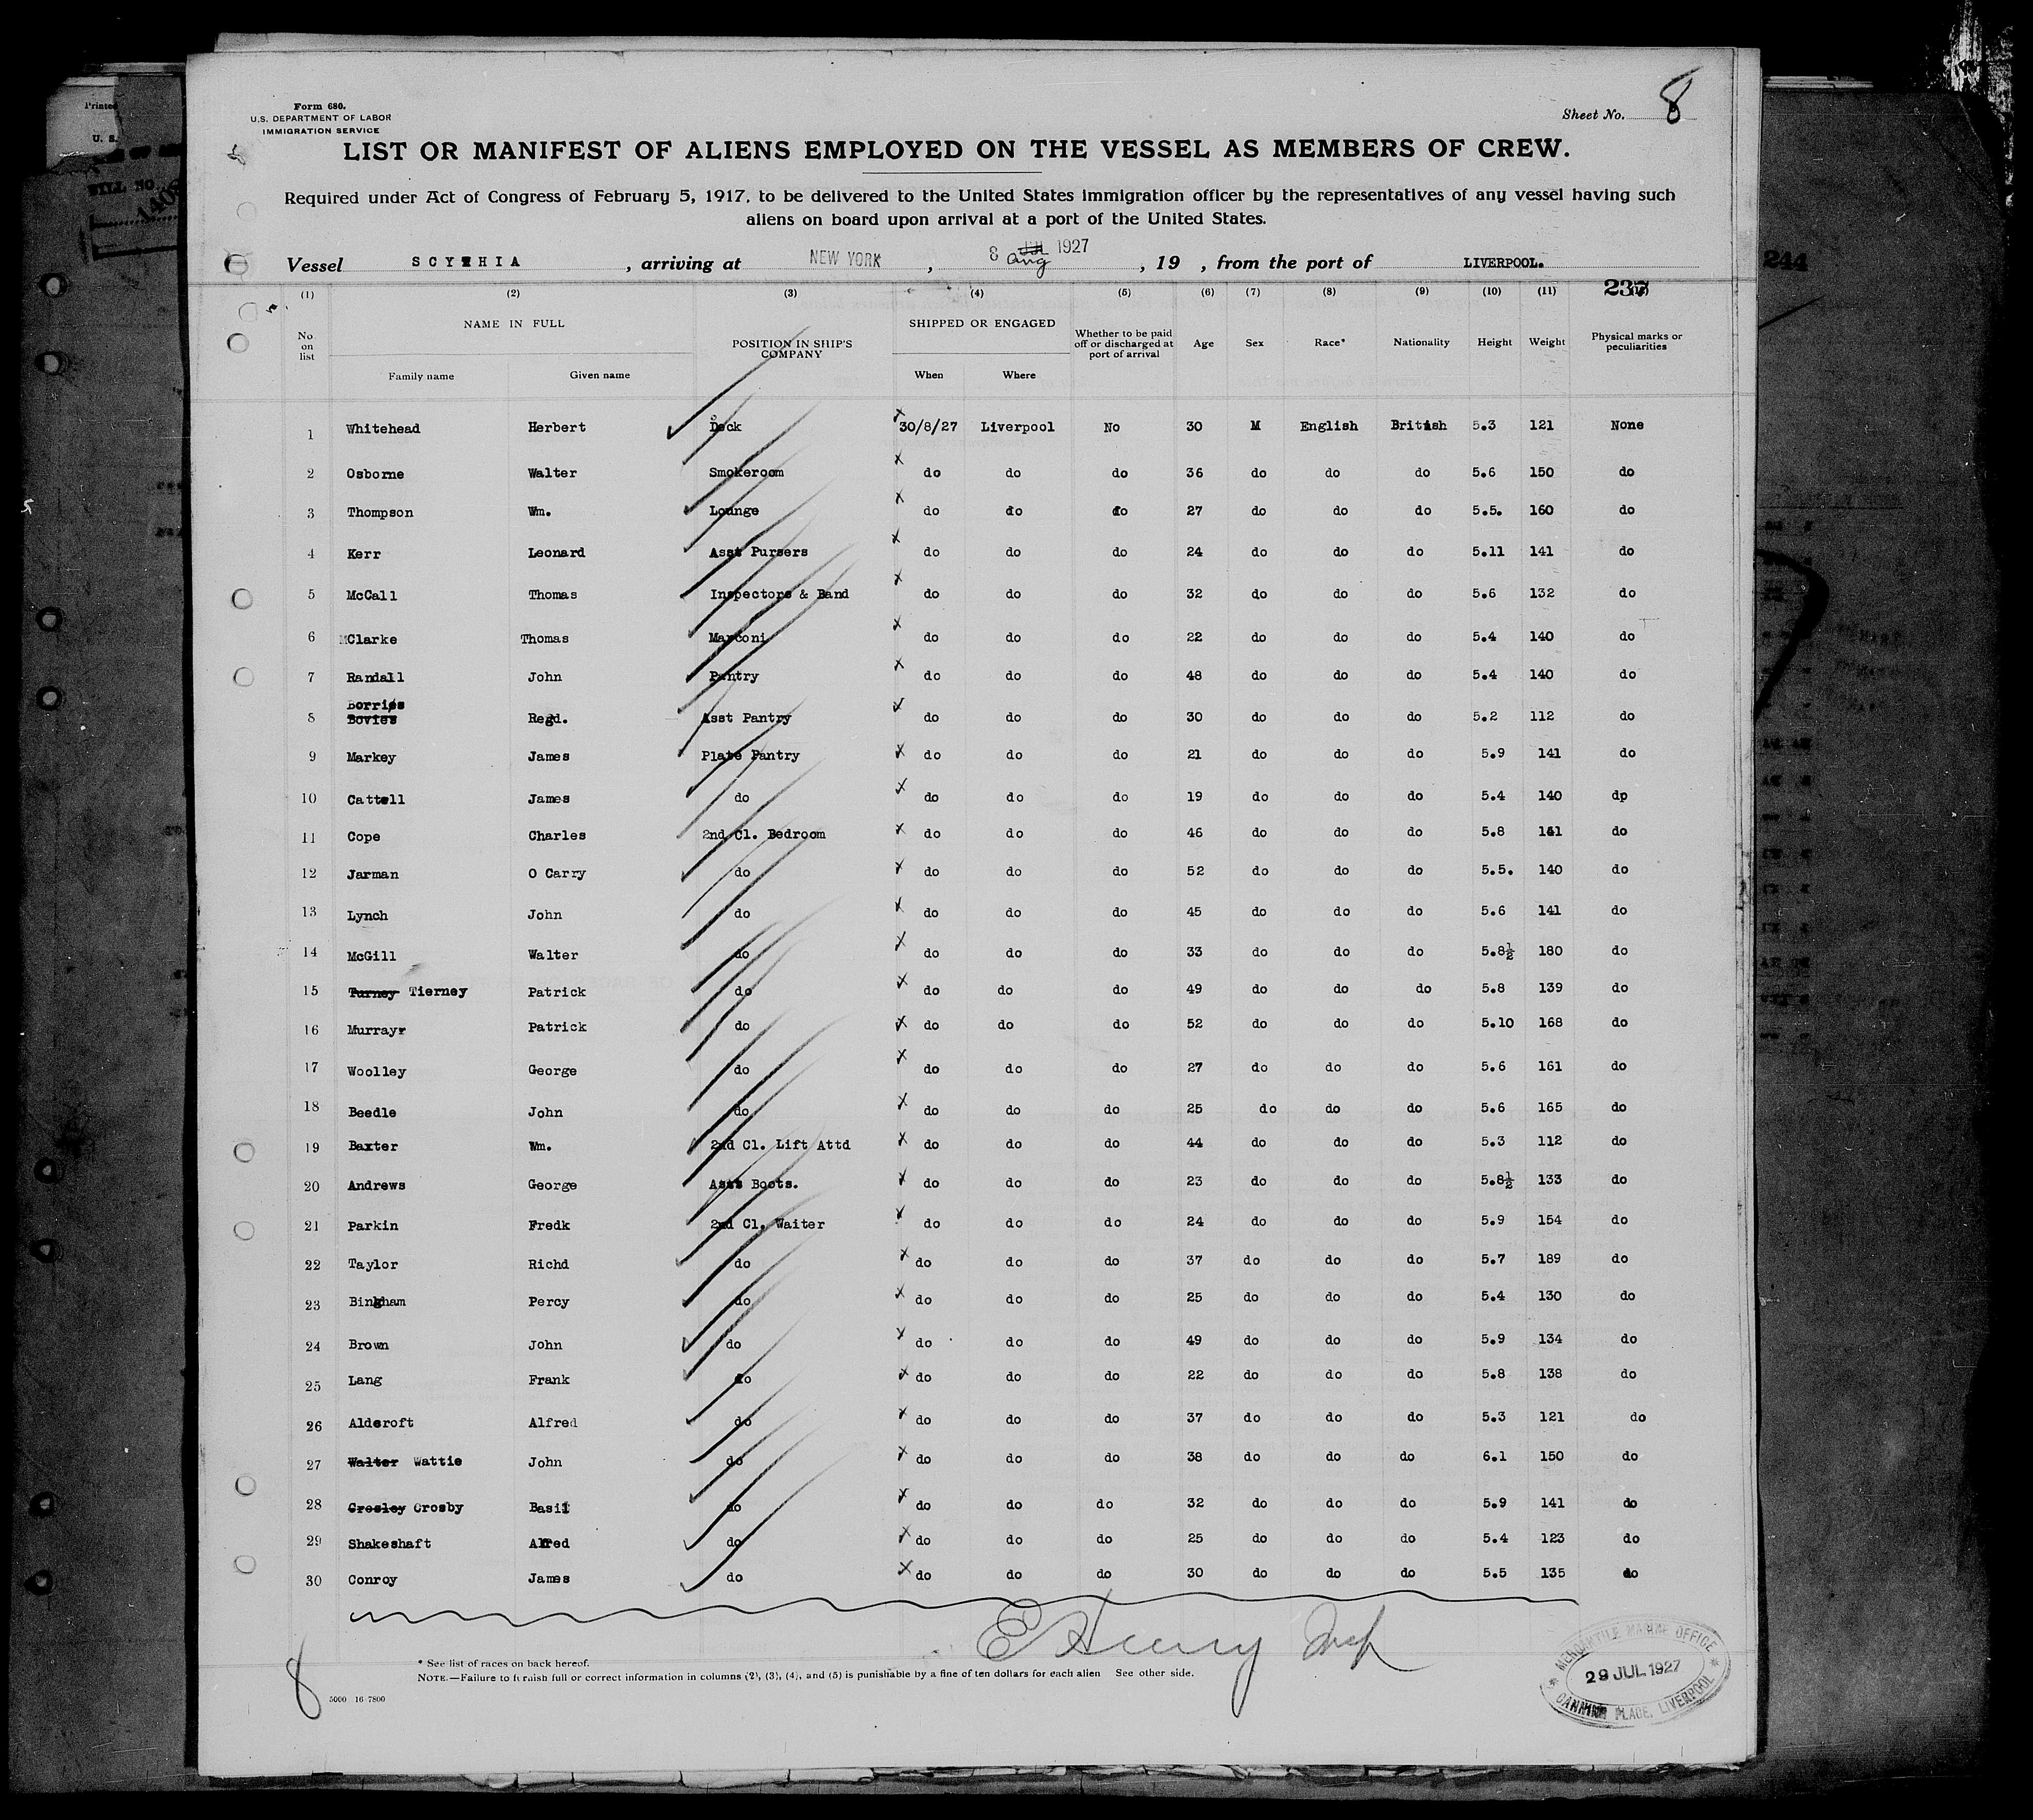 Form 680.
U.S. DEPARTMENT OF LABOR
IMMIGRATION SERVICE
Sheet No. 8
LIST OR MANIFEST OF ALIENS EMPLOYED ON THE VESSEL AS MEMBERS OF CREW.
Required under Act of Congress of February 5, 1917, to be delivered to the United States immigration officer by the representatives of any vessel having such
aliens on board upon arrival at a port of the United States.
Vessel SCYTHIA , arriving at NEW YORK , 8 Aug 1927 , 19 , from the port of LIVERPOOL.
237
(1) (2) (3) (4) (5) (6) (7) (8) (9) (10) (11)
No on list NAME IN FULL Family name Given name POSITION IN SHIP'S COMPANY SHIPPED OR ENGAGED When Where Whether to be paid off or discharged at port of arrival Age Sex Race* Nationality Height Weight Physical marks or peculiarities
1 Whitehead Herbert Deck 30/8/27 Liverpool No 30 M English British 5.3 121 None
2 Osborne Walter Smokeroom do do do 36 do do do 5.6 150 do
3 Thompson Wm. Lounge do do do 27 do do do 5.5. 160 do
4 Kerr Leonard Asst Pursers do do do 24 do do do 5.11 141 do
5 McCall Thomas Inspectors & Band do do do 32 do do do 5.6 132 do
6 Clarke Thomas Marconi do do do 22 do do do 5.4 140 do
7 Randall John Pantry do do do 48 do do do 5.4 140 do
8 Borries Bovies Regd. Asst Pantry do do do 30 do do do 5.2 112 do
9 Markey James Plate Pantry do do do 21 do do do 5.9 141 do
10 Cattell James do do do do 19 do do do 5.4 140 dp
11 Cope Charles 2nd Cl. Bedroom do do do 46 do do do 5.8 161 do
12 Jarman O Carry do do do do 52 do do do 5.5. 140 do
13 Lynch John do do do do 45 do do do 5.6 141 do
14 McGill Walter do do do do 33 do do do 5.8½ 180 do
15 Turney Tierney Patrick do do do do 49 do do do 5.8 139 do
16 Murray Patrick do do do do 52 do do do 5.10 168 do
17 Woolley George do do do do 27 do do do 5.6 161 do
18 Beedle John do do do do 25 do do do 5.6 165 do
19 Baxter Wm. 2nd Cl. Lift Attd do do do 44 do do do 5.3 112 do
20 Andrews George Asst Boots. do do do 23 do do do 5.8½ 133 do
21 Parkin Fredk 2nd Cl. Waiter do do do 24 do do do 5.9 154 do
22 Taylor Richd do do do do 37 do do do 5.7 189 do
23 Bingham Percy do do do do 25 do do do 5.4 130 do
24 Brown John do do do do 49 do do do 5.9 134 do
25 Lang Frank do do do do 22 do do do 5.8 138 do
26 Aldcroft Alfred do do do do 37 do do do 5.3 121 do
27 Walter Wattie John do do do do 38 do do do 6.1 150 do
28 Crosley Crosby Basil do do do do 32 do do do 5.9 141 do
29 Shakeshaft Alfred do do do do 25 do do do 5.4 123 do
30 Conroy James do do do do 30 do do do 5.5 135 do
* See list of races on back hereof.
NOTE.—Failure to furnish full or correct information in columns (2), (3), (4), and (5) is punishable by a fine of ten dollars for each alien See other side.
5000 16-7800
8
MERCANTILE MARINE OFFICE
29 JUL 1927
CANNING PLACE, LIVERPOOL
244